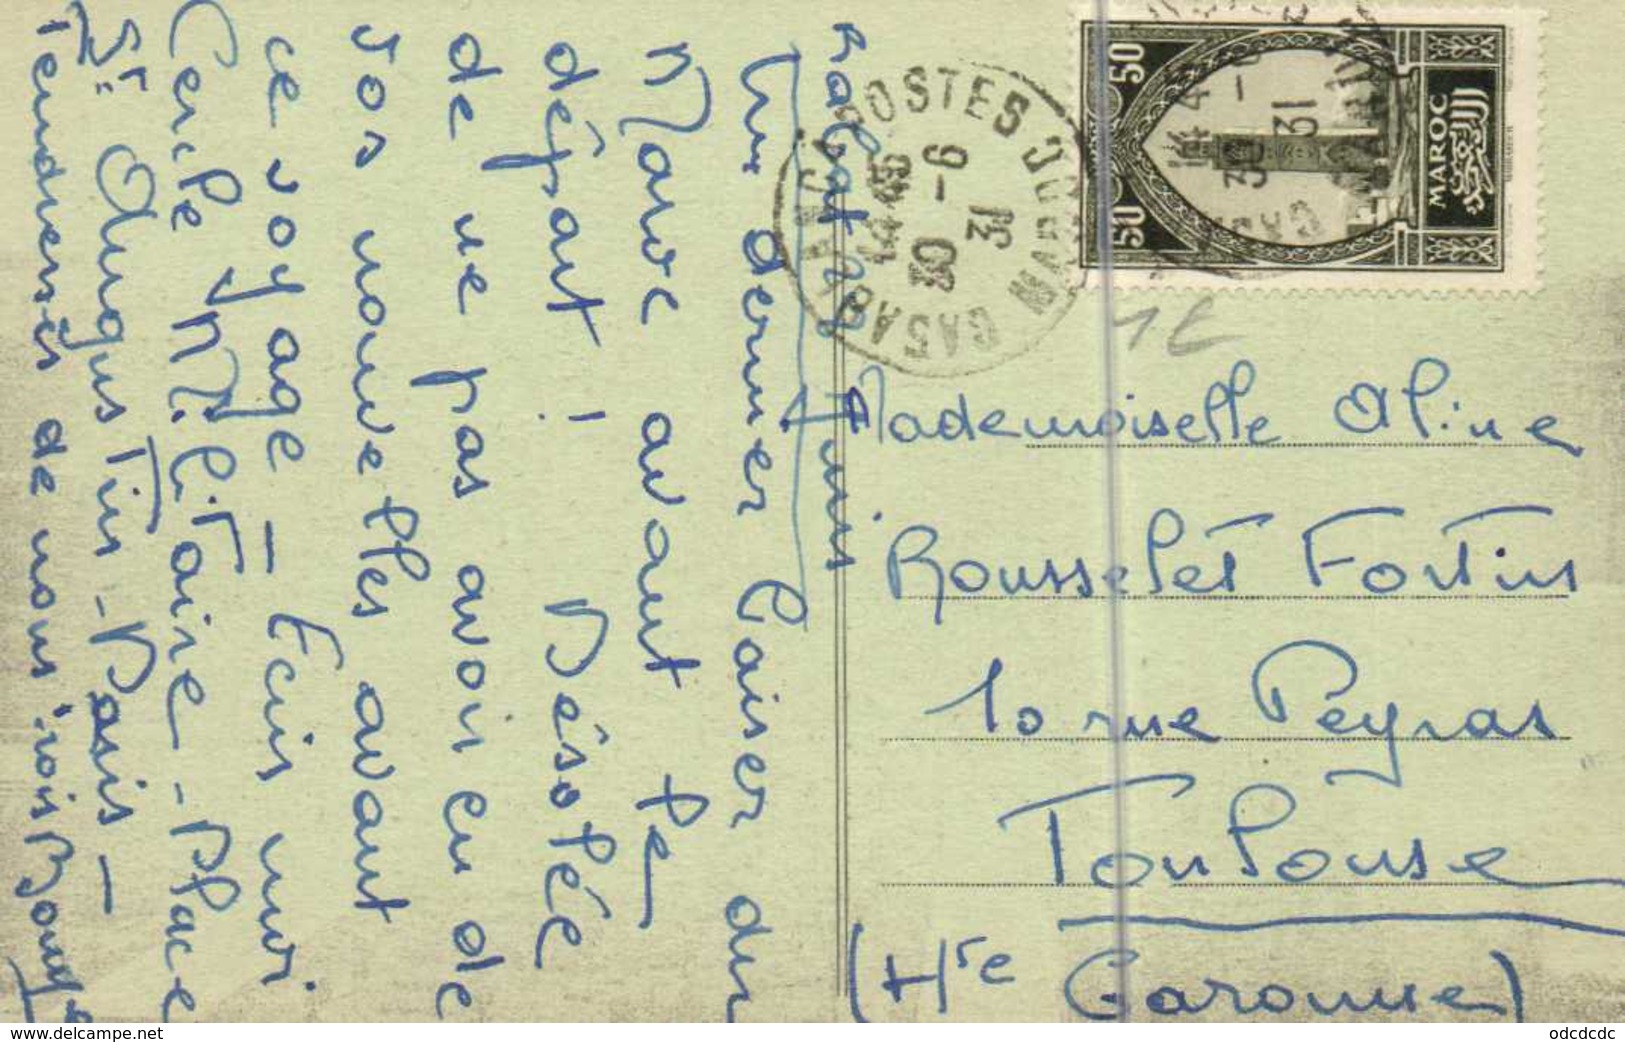 Rabat 29 Juin
Un dernier baiser du
Maroc avant le
départ ! Désolée
de ne pas avoir eu de
vos nouvelles avant
ce voyage — Ecris moi
Cercle Militaire - Place
St Augustin - Paris —
Tendresses de nous trois
POSTES
CASABLANCA
14 45
30 - 6
31
MAROC
50
50
MAROC
1€
Mademoiselle Aline
Rousselet Fortin
10 rue Peyras
Toulouse
(Hte Garonne)
delcampe.net
odcdcdc